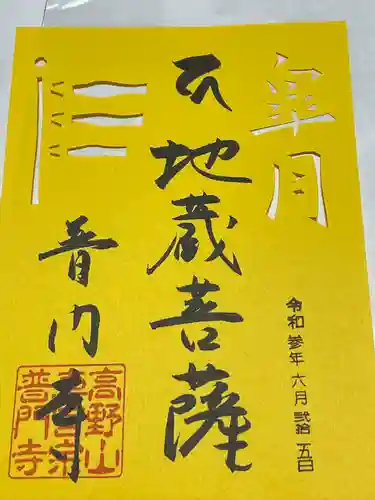 皐月
地蔵菩薩
令和参年六月弐拾五日
普門寺
高野山
真言宗
普門寺